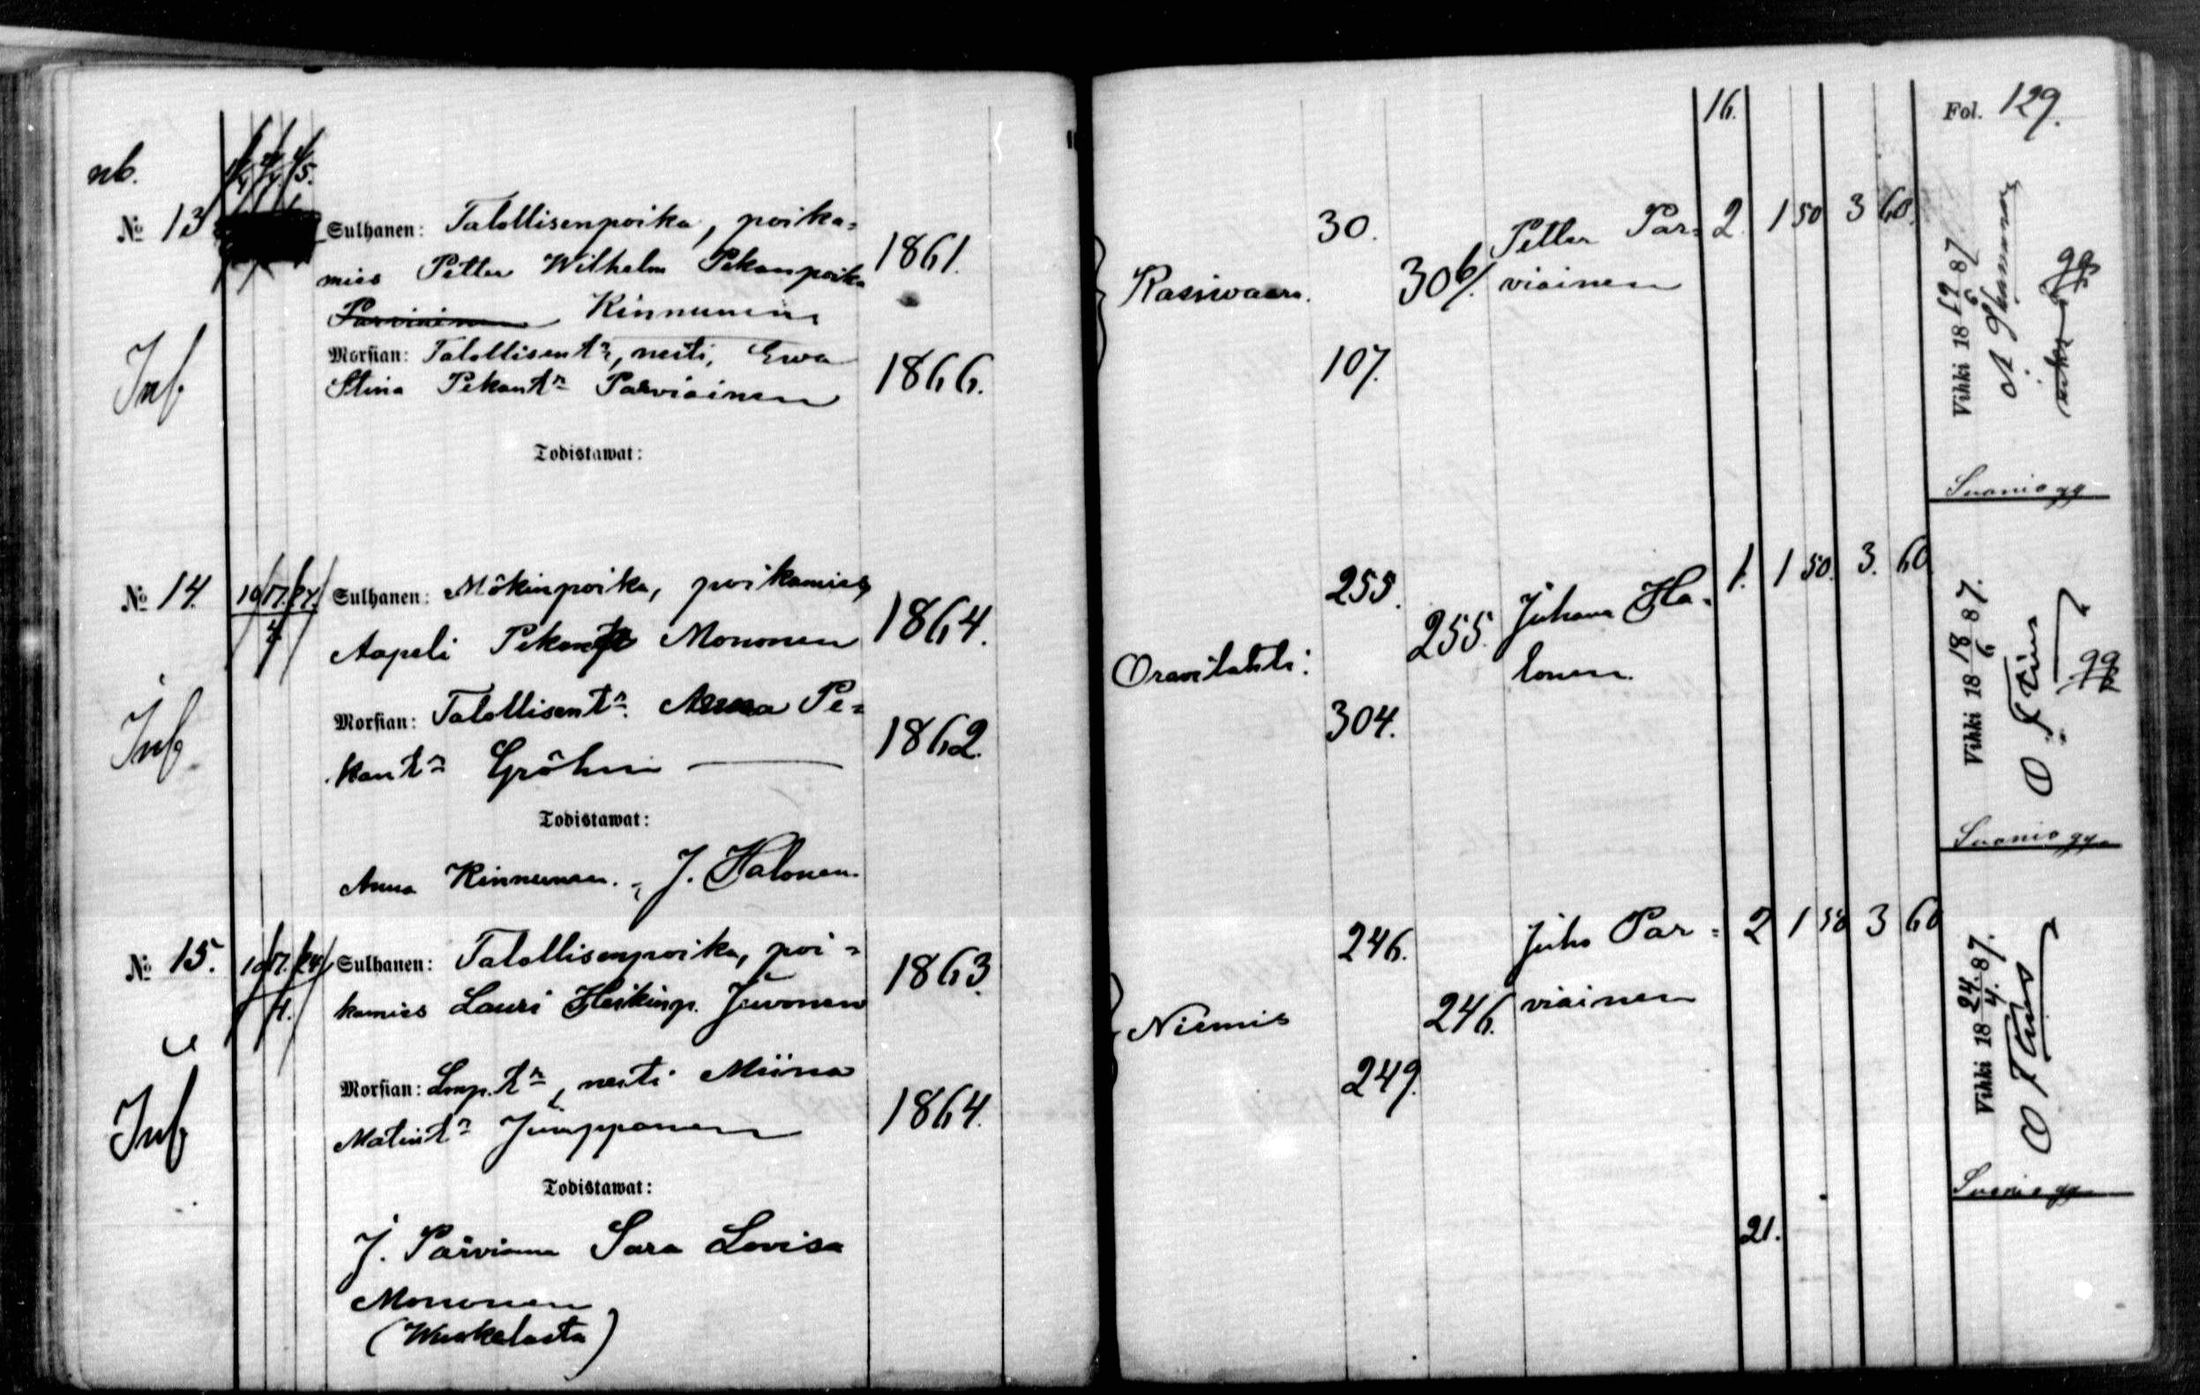 nb.
№ 13
Sulhanen: Talollisenpoika, poika=
mies Petter Wilhelm Pekanpoika
Parviainen Kinnunen
1861.
Inf
Morsian: Talollisent:r, neiti, Ewa
Stina Pekant:r Parviainen
1866.
Todistawat:
№ 14.
10/17./24.
4
Sulhanen: Mökinpoika, poikamies
Aapeli Pekanp Mononen
1864.
Inf
Morsian: Talollisent:r. Anna Pe=
kant:r Gröhn
1862.
Todistawat:
Anna Kinnunen. J. Halonen.
№ 15.
10/17./24/
4.
Sulhanen: Talollisenpoika, poi=
kamies Lauri Heikinp. Juvonen
1863.
Inf
Morsian: Lmp. t:r, neiti Miina
Matint:r Jumppanen
1864.
Todistawat:
J. Parviainen Sara Lovisa
Mononen
(Wuokelasta)
16.
Fol. 129.
30.
Petter Par=
2. 1 50 3 60.
Rasiwaara.
30b/.
viainen
107.
Vihki 18 19/6 87
Suonio gg
255.
Juhana Ha=
1. 1 50. 3. 60
Oravilahti.
255.
lonen.
304.
Vihki 18 18/6 87.
gg
Suonio gg.
246.
Juho Par=
2 1 50 3 60
Niemis
246.
viainen
249.
Vihki 18 24./4. 87.
Suonio gg
21.